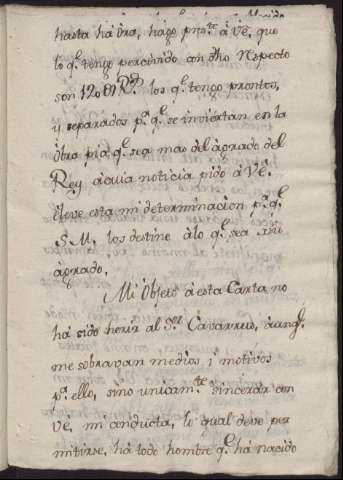 hasta há ôra, hago pnte. â VE. que
lo q.l tengo percevido an dho respecto
son los q.l tengo prontos,
y separados p.a q.l se inviertan en la
ôbra pia q.l sea mas del âgrado del
Rey âcuia noticia pido â VE.
êleve esta mi determinacion p.a q.l
S. M. los destine âlo q.l sea su
âgrado.
Mi Objeto â esta Carta no
ha sido herir al S.or Cavarrus, âunq.l
me sobravan medios i motivos
p.a ello, sino unicam.te sincerar con
VE. mi conducta, lo qual deve per
mitirse, há todo hombre q.l ha nacido